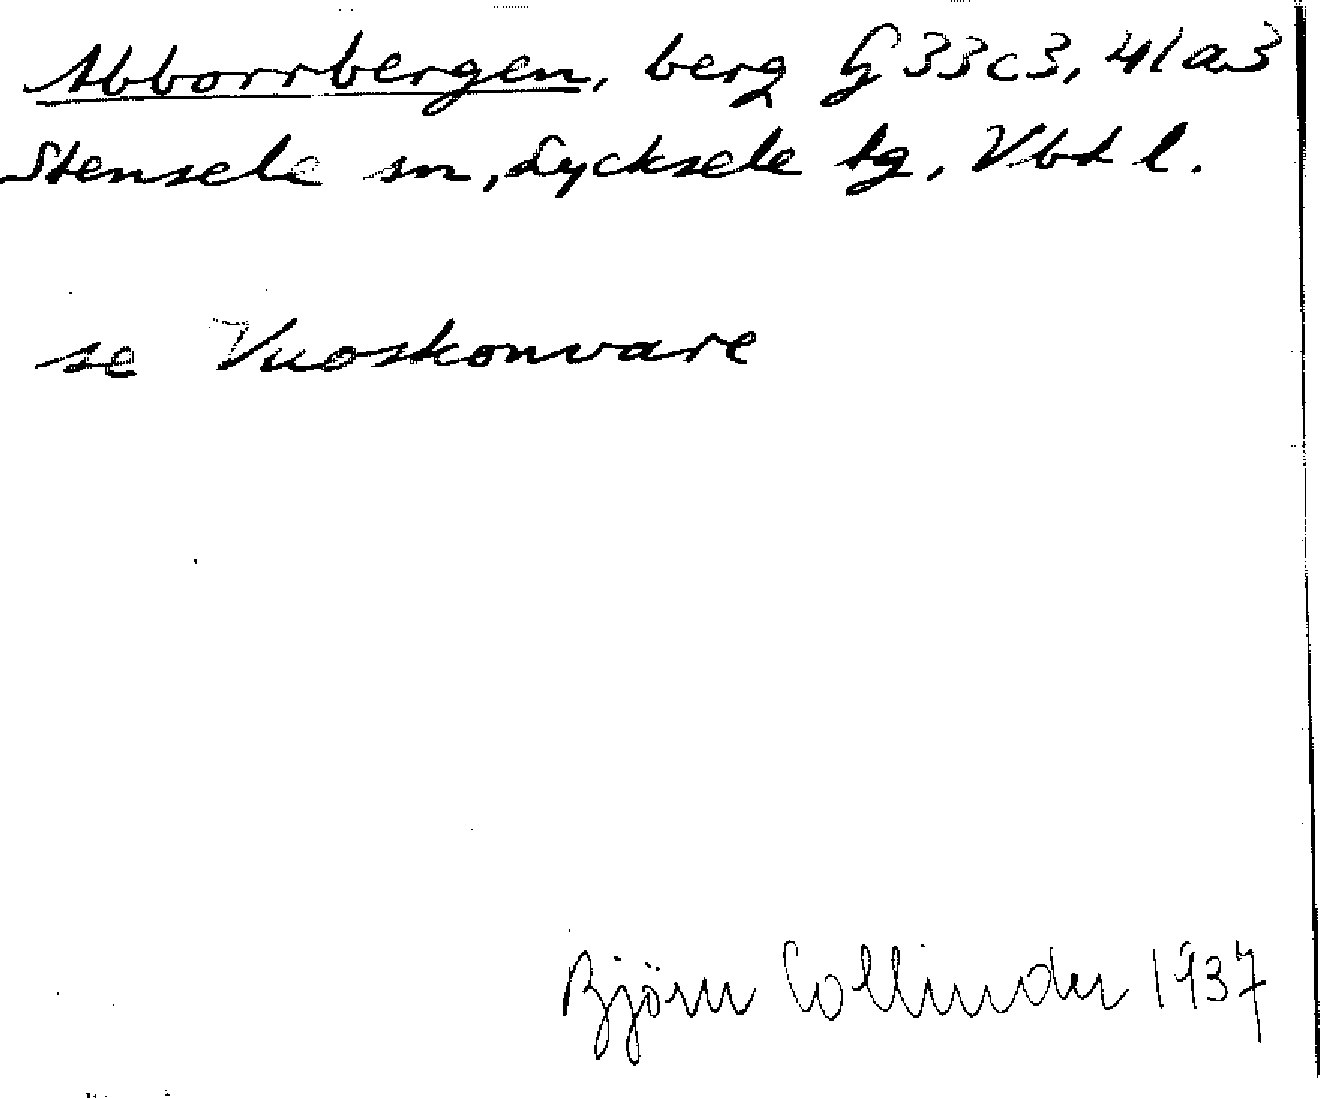 Abborrbergen, berg G 33c3, 41a3
Stensele sn, Lycksele tg, Vbd l.
se Vuoskonvare
Björn Collinder 1937